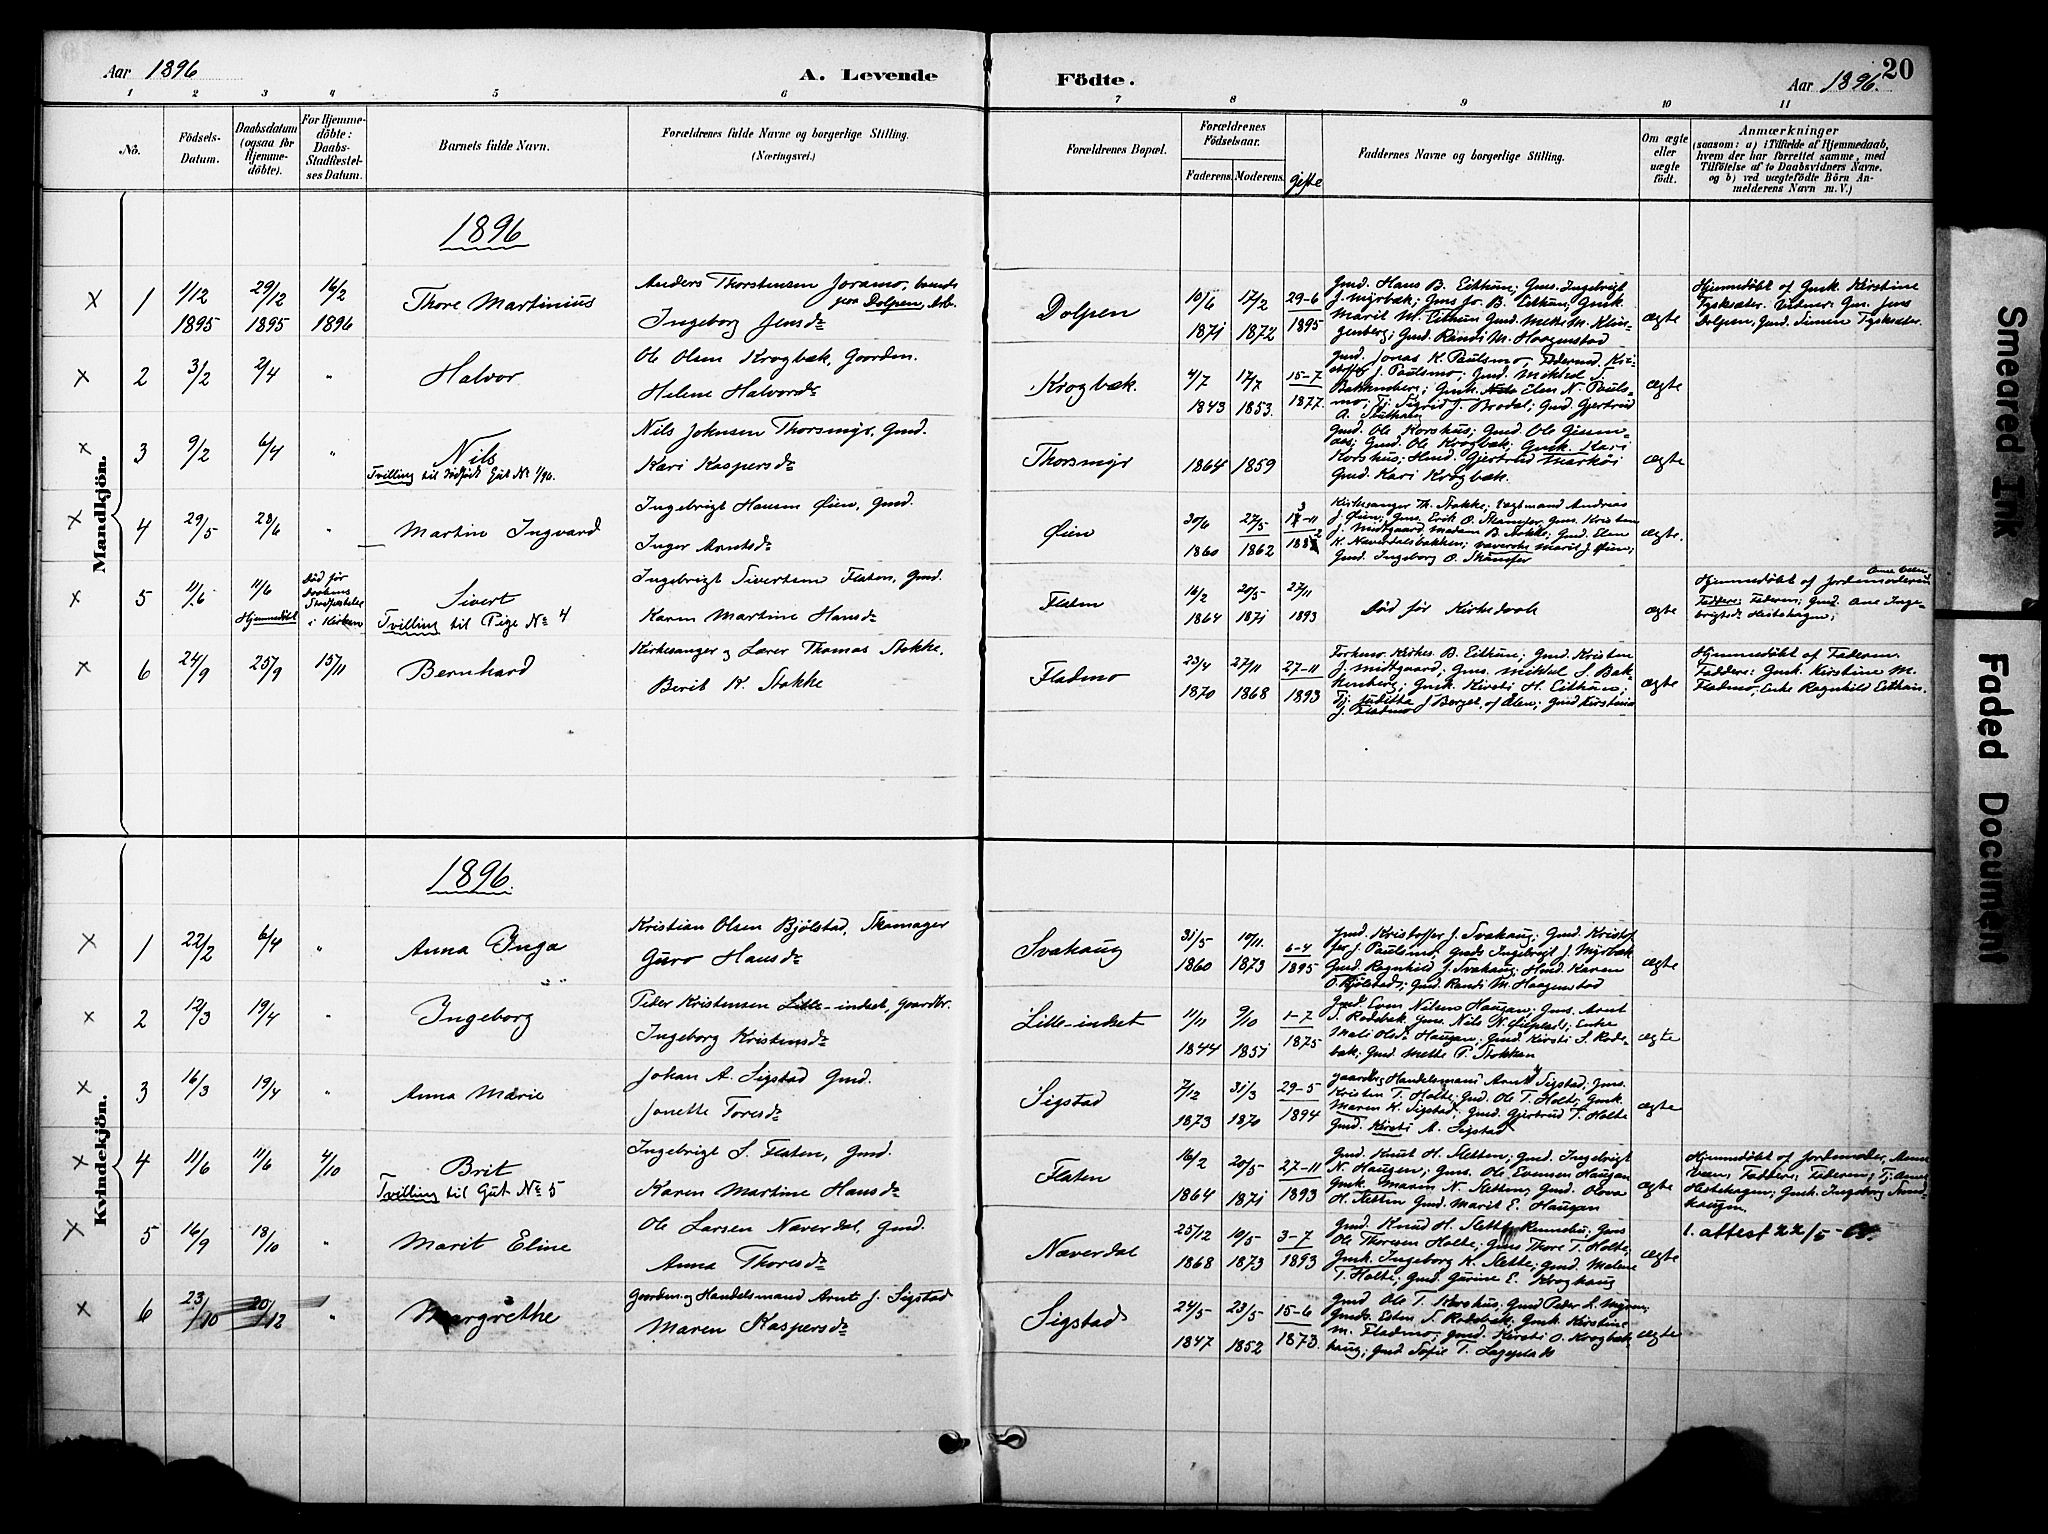 Aar 1896
A. Levende Födte.
Aar 1896. 20
1 2 3 4 5 6 7 8 9 10 11
No.
Födsels-Datum.
Daabsdatum (ogsaa for Hjemme-döbte).
For Hjemme-döbte: Daabs-Stadfæstel-ses Datum.
Barnets fulde Navn.
Forældrenes fulde Navne og borgerlige Stilling. (Næringsvei.)
Forældrenes Bopæl.
Forældrenes Födselsaar.
Faderens. Moderens. gifte
Faddernes Navne og borgerlige Stilling.
Om ægte eller uægte födt.
Anmærkninger
(saasom: a) i Tilfælde af Hjemmedaab, hvem der har forrettet samme, med Tilföielse af to Daabsvidners Navne. og b) ved uægtefödte Börn An-melderens Navn m. V.)
Mandkjön.
1896
1 1/12 1895 29/12 1895 16/2 1896
Thore Martinius
Anders Thorstensen Joramo,
Dolpen, Arb.
Ingeborg Jensdr
Dolpen
10/6 1871 17/2 1872 29-6 1895
Gmd. Hans B. Eithun; Gms. Ingebrigt
J. Myrbæk; Gms Jo. B. Eithun; Gmk.
Marit M. Eithun Gmd. Mette M. Klin-
genberg; Gmd. Randi M. Haagenstad
ægte
Hjemmedöbt af Gmk. Kirstine
Dolpen, Gmd. Simen
2 3/2 2/4 "
Halvor
Ole Olsen Krogbæk, Gaardm.
Helene Halvorsdr
Krogbæk
4/7 1843 17/7 1853. 15-7 1877.
Gmd. Jonas K. Paulsmo,
J. Paulsmo; Gmd. Mikkel S.
Bakkenberg; Gmk. Elen N. Pauls-
mo; Tj. Sigrid J. Brodal; Gmd Gjertrud
ægte
3 9/2 6/4 "
Nils
Tvilling til dödfödt Gut No 1/96.
Nils Johnsen Thorsmyr, Gmd.
Kari Kaspersdr
Thorsmyr
1864 1859
Gmd. Ole Korshus; Gmd. Ole
Gmd. Ole Krogbæk; Gmk. Kari
Korshus; Gjertrud
Gmd. Kari Krogbæk.
ægte
4 29/5 28/6 "
Martin Ingvard
Ingebrigt Hansen Øien, Gmd.
Inger Arntsdr
Øien
30/6 1860 27/5 1862
Kirkesanger Th. Stokke; Lægtmand Andreas
J. Øien; Gms. Erik O. Skamfer, Gms. Kristen
J. Midtgaard, Madam B. Stokke; Gmd. Elen
K. Næverdalsbakken; Marit J. Øien;
Gmd. Ingeborg O. Skamfer
ægte.
5 11/6 11/6 Hjemmedöbt
Död för Daabens Stadfæstelse i Kirken
Sivert
Tvilling til Pige No 4
Ingebrigt Sivertsen Flaten, Gmd.
Karen Martine Hansdr
Flaten
16/2 1864 20/5 1871 27/11 1893
Död för Kirkedaab
ægte
Hjemmedöbt af Jordemoderen
Faddere: Faderen; Gmd. Ane Inge-
brigtsdr Hestehagen;
6 24/9 25/9 15/11
Bernhard
Kirkesanger og Lærer Thomas Stokke,
Berit K. Stokke
Fladmo
23/4 1870 27/11 1868 27-11 1893
Forhenv. Kirkes. B. Eithun; Gmd. Kristen
J. Midtgaard; Gms. Mikkel S. Bak-
kenberg; Gmk. Kirsti H. Eithun;
Tj. Juditta J Berget, af Ålen; Gmd Kirstine
J. Fladmo
ægte
Hjemmedöbt af Faderen.
Faddere: Gmk. Kirstine M.
Fladmo, Enke Ragnhild Eithun.
Kvindekjön.
1896.
1 22/2 6/4 "
Anna Inga
Kristian Olsen Bjølstad, Skomager
Guro Hansdr
Svahaug
31/5 1860 10/11. 1873 6-4 1895
Gmd. Kristoffer J. Svahaug; Gmd. Kristof-
fer J. Paulsmo; Gmds Ingebrigt J. Myrbæk
Gmd. Ragnhild J. Svahaug; Hmd. Karen
O. Bjølstad; Gmd. Randi M. Haagenstad
ægte
2 12/3 19/4 "
Ingeborg
Peder Kristensen Lille-indset, Gaardbr.
Ingeborg Kristensdr
Lille-indset
11/11 1844 9/10 1851 1-7 1875
Gmd. Even Nilsens Haugen; Gms. Arnt
S. Rodebæk, Gms. Nils N. Øieplads; Enke
Mali Olsdr Haugen; Gmd. Kirsti S. Rode-
bæk; Gmd. Mette P. Stokkan
ægte
3 16/3 19/4 "
Anna Marie
Johan A. Sigstad Gmd.
Jonette Toresdr
Sigstad
7/12 1873 31/3 1870 29-5 1894
Gaardbr. Handelsmand Arnt J Sigstad; Gms.
Kristen T. Holte; Gmd. Ole T. Holte; Gmk.
Maren K. Sigstad; Gmd. Gjertrud T. Holte
Gmd. Kirsti A. Sigstad
ægte
4 11/6 11/6 4/10
Brit
Tvilling til Gut No 5
Ingebrigt S. Flaten, Gmd.
Karen Martine Hansdr
Flaten
16/2 1864 20/5 1871 27-11 1893
Gmd. Knut H. Sletten; Gmd. Ingebrigt
N. Haugen; Gms. Ole Evensen Haugan
Gmk. Maren N. Sletten; Gmd. Olova
H. Sletten Gmd. Marit E. Haugan
ægte
Hjemmedöbt af Jordemoder, Anne
Faddere: Faderen; Tj. Anne
Hestehagen; Gmk. Ingeborg
haugen.
5 16/9 18/10 "
Marit Eline
Ole Larsen Næverdal, Gmd.
Anna Thoresdr
Næverdal
25/12 1868 10/5 1873 3-7 1893
Gmd. Knud H. Slette Rennebu, Gms
Ole Thoresen Holte; Gms Thore T. Holte,
Gmk. Ingeborg K. Slette; Gmd. Malene
T. Holte; Gmd. Gurine E. Kroghaug
ægte
1. attest 22/5-
6 23/10 20/12 "
Margrethe
Gaardm. og Handelsmand Arnt J. Sigstad
Maren Kaspersdr
Sigstad
24/5 1847 23/5 1852 15-6 1873.
Gmd Ole T. Korshus; Gmd Peder L. Myren;
Gmds. Esten S. Rodebæk; Gmk. Kirstine
M. Fladmo, Gmd. Kirsti O. Krogbæk-
haug; Gmd Sofie T. Lageplads
ægte
Smeared Ink
Faded Document